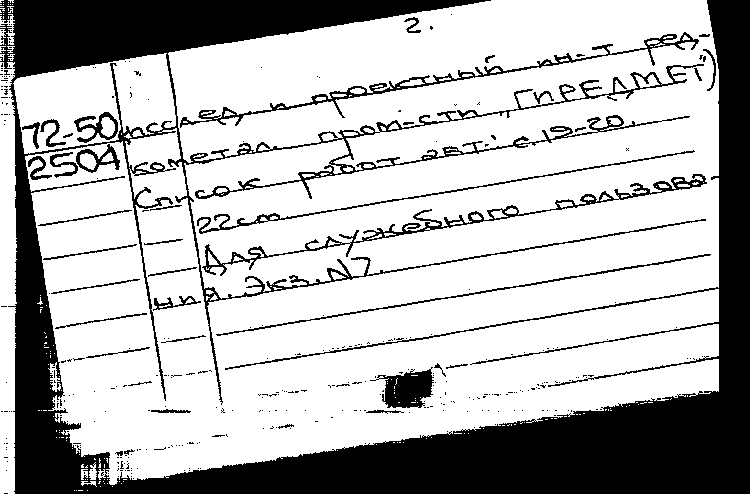 2.
72-50
2504
исслед. и проектный ин-т ред-
комет­ал. пром-сти „ГИРЕДМЕТ")
Список работ авт.: с.19-20.
22см
Для служебного пользова-
ния. Экз. N7.